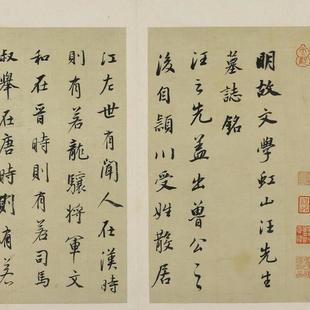 明故文學虹山汪先生
墓誌銘
汪之先蓋出魯公之
後自潁川受姓散居
江左世有聞人在漢時
則有若龍驤將軍文
和在晉時則有若司馬
叔舉在唐時則有若